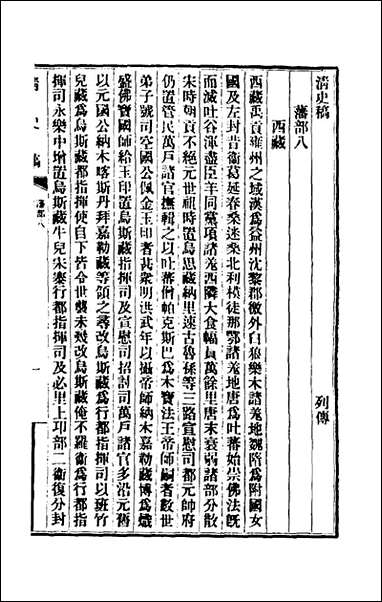 清史稿
藩部八　列傳
西藏
西藏禹貢雍州之域漢爲益州沈黎郡徼外白狼樂木諸羌地魏隋爲附國女
國及左封昔衞葛延春桑迷桑北利模徒那鄂諸羌地唐爲吐蕃始崇佛法旣
而滅吐谷渾盡臣羊同黨項諸羌西隣大食幅員萬餘里唐末衰弱諸部分散
宋時朝貢不絕元世祖時置烏思藏納里速古魯孫等三路宣慰司都元帥府
仍置管民萬戶諸官撫輯之以吐蕃僧帕克斯巴爲大寶法王帝師嗣者數世
弟子號司空國公佩金玉印者甚衆明洪武年以攝帝師納木嘉勒藏博爲熾
盛佛寶國師給玉印置烏斯藏指揮司及宣慰司招討司萬戶諸官多沿元舊
以元國公納木喀斯丹拜嘉勒藏等領之尋改烏斯藏爲行都指揮司以班竹
兒藏爲烏斯藏都指揮使自下皆令世襲未幾改烏斯藏俺不羅衞爲行都指
揮司永樂中增置烏斯藏牛兒朱寨行都指揮司及必里上卭部二衞復分封
清史稿　藩部八　一